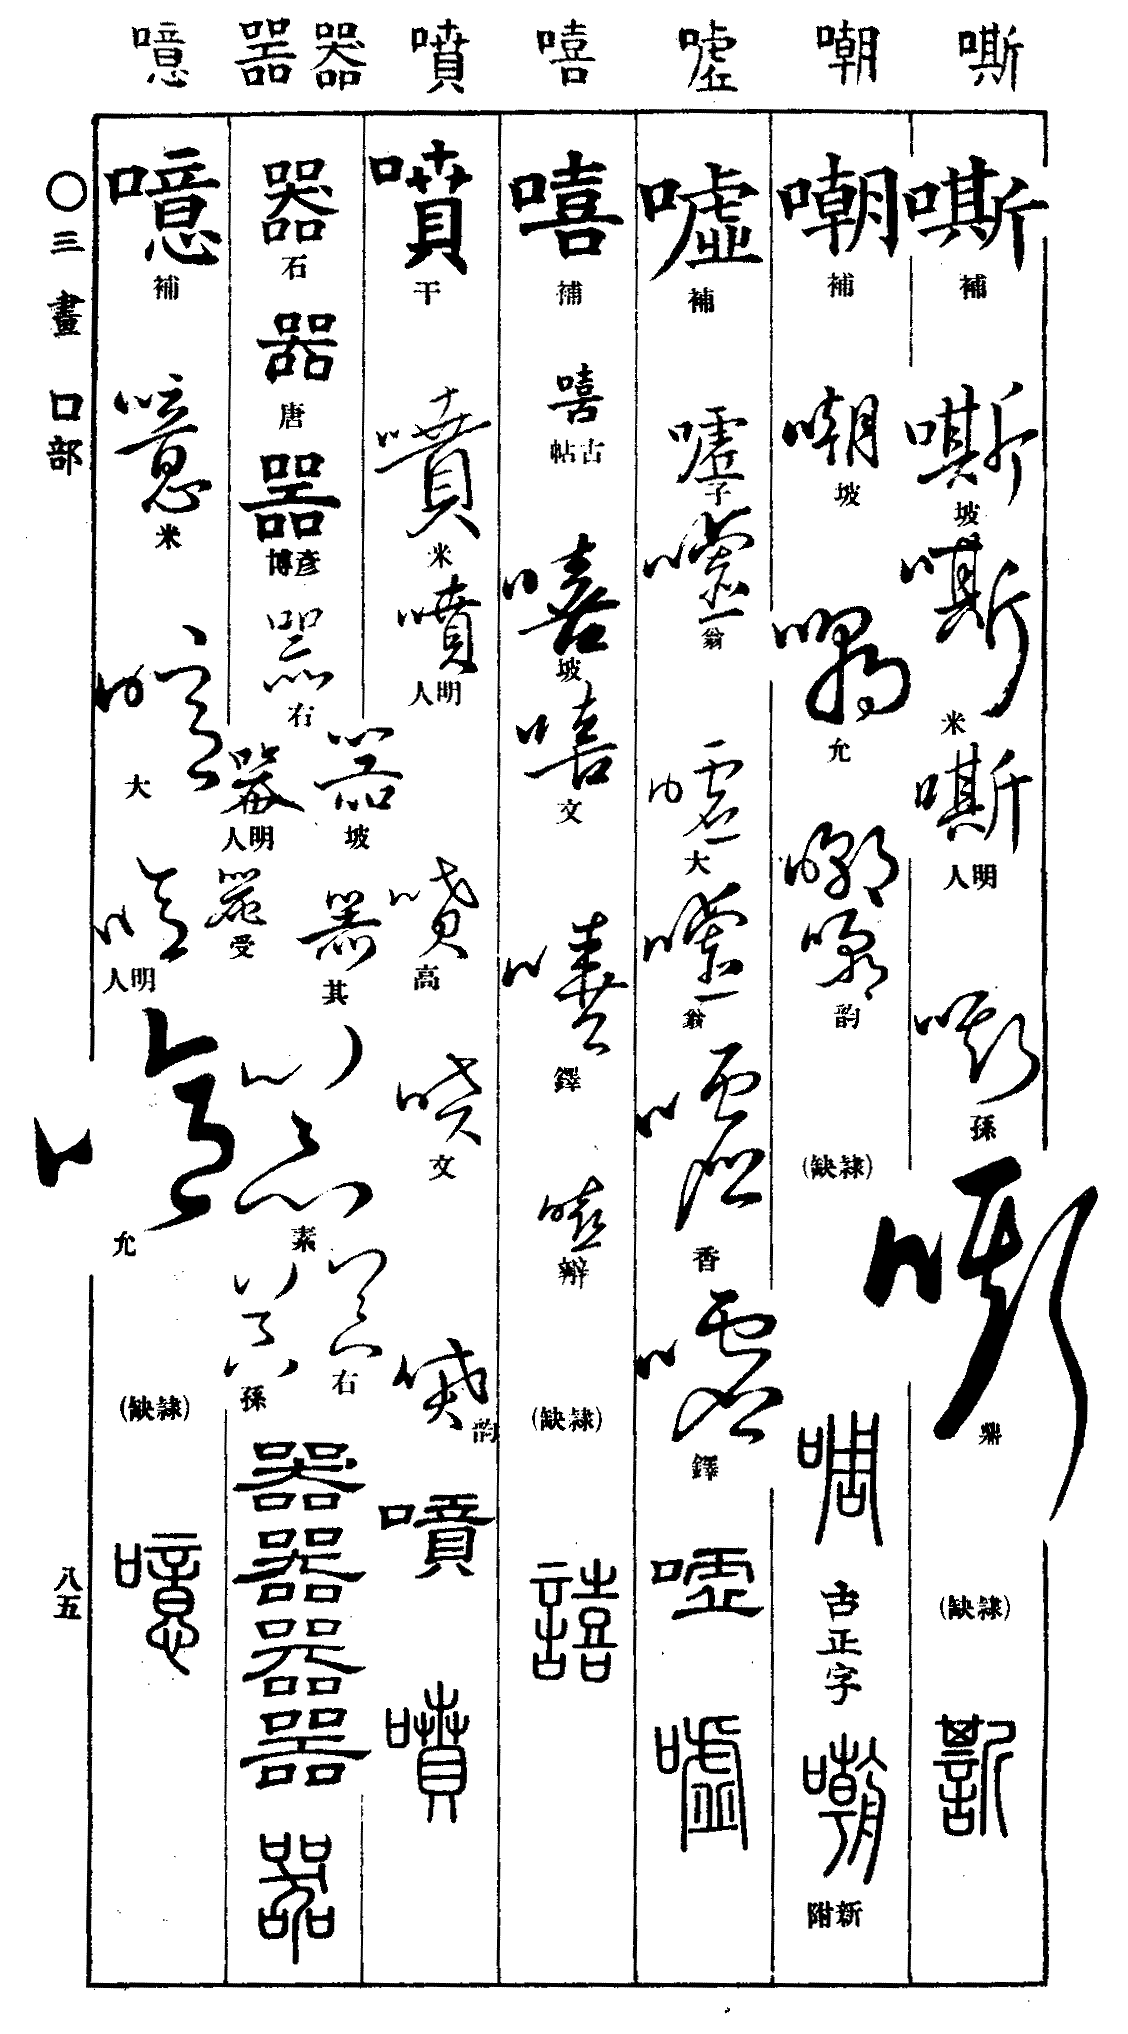 嘶 嘲 嘘 嘻 噴 器 器 噫
嘶 補
嘶 坡
嘶 米
嘶 明人
嘶 孫
嘶 鼎
(隷缺)
嘲 補
嘲 坡
嘲 允
嘲
嘲 韵
(隷缺)
啁
古正字
嘲
新附
嘘 補
嘘 子
嘘 翁
嘘 大
嘘 翁
嘘 香
嘘 鐸
嘘
嘘
嘻 補
嘻 古帖
嘻 坡
嘻 文
嘻 鐸
嘻 辮
(隷缺)
譆
噴 干
噴 米
噴 明人
噴 高
噴 文
噴 韵
噴
噴
器 石
器 唐
器 彦博
器 右
器 坡
器 明人
器 其
器 受
器 素
器 右
器 孫
器
器
器
器
器
噫 補
噫 米
噫 大
噫 明人
噫 允
(隷缺)
噫
〇三畫 口部
八五